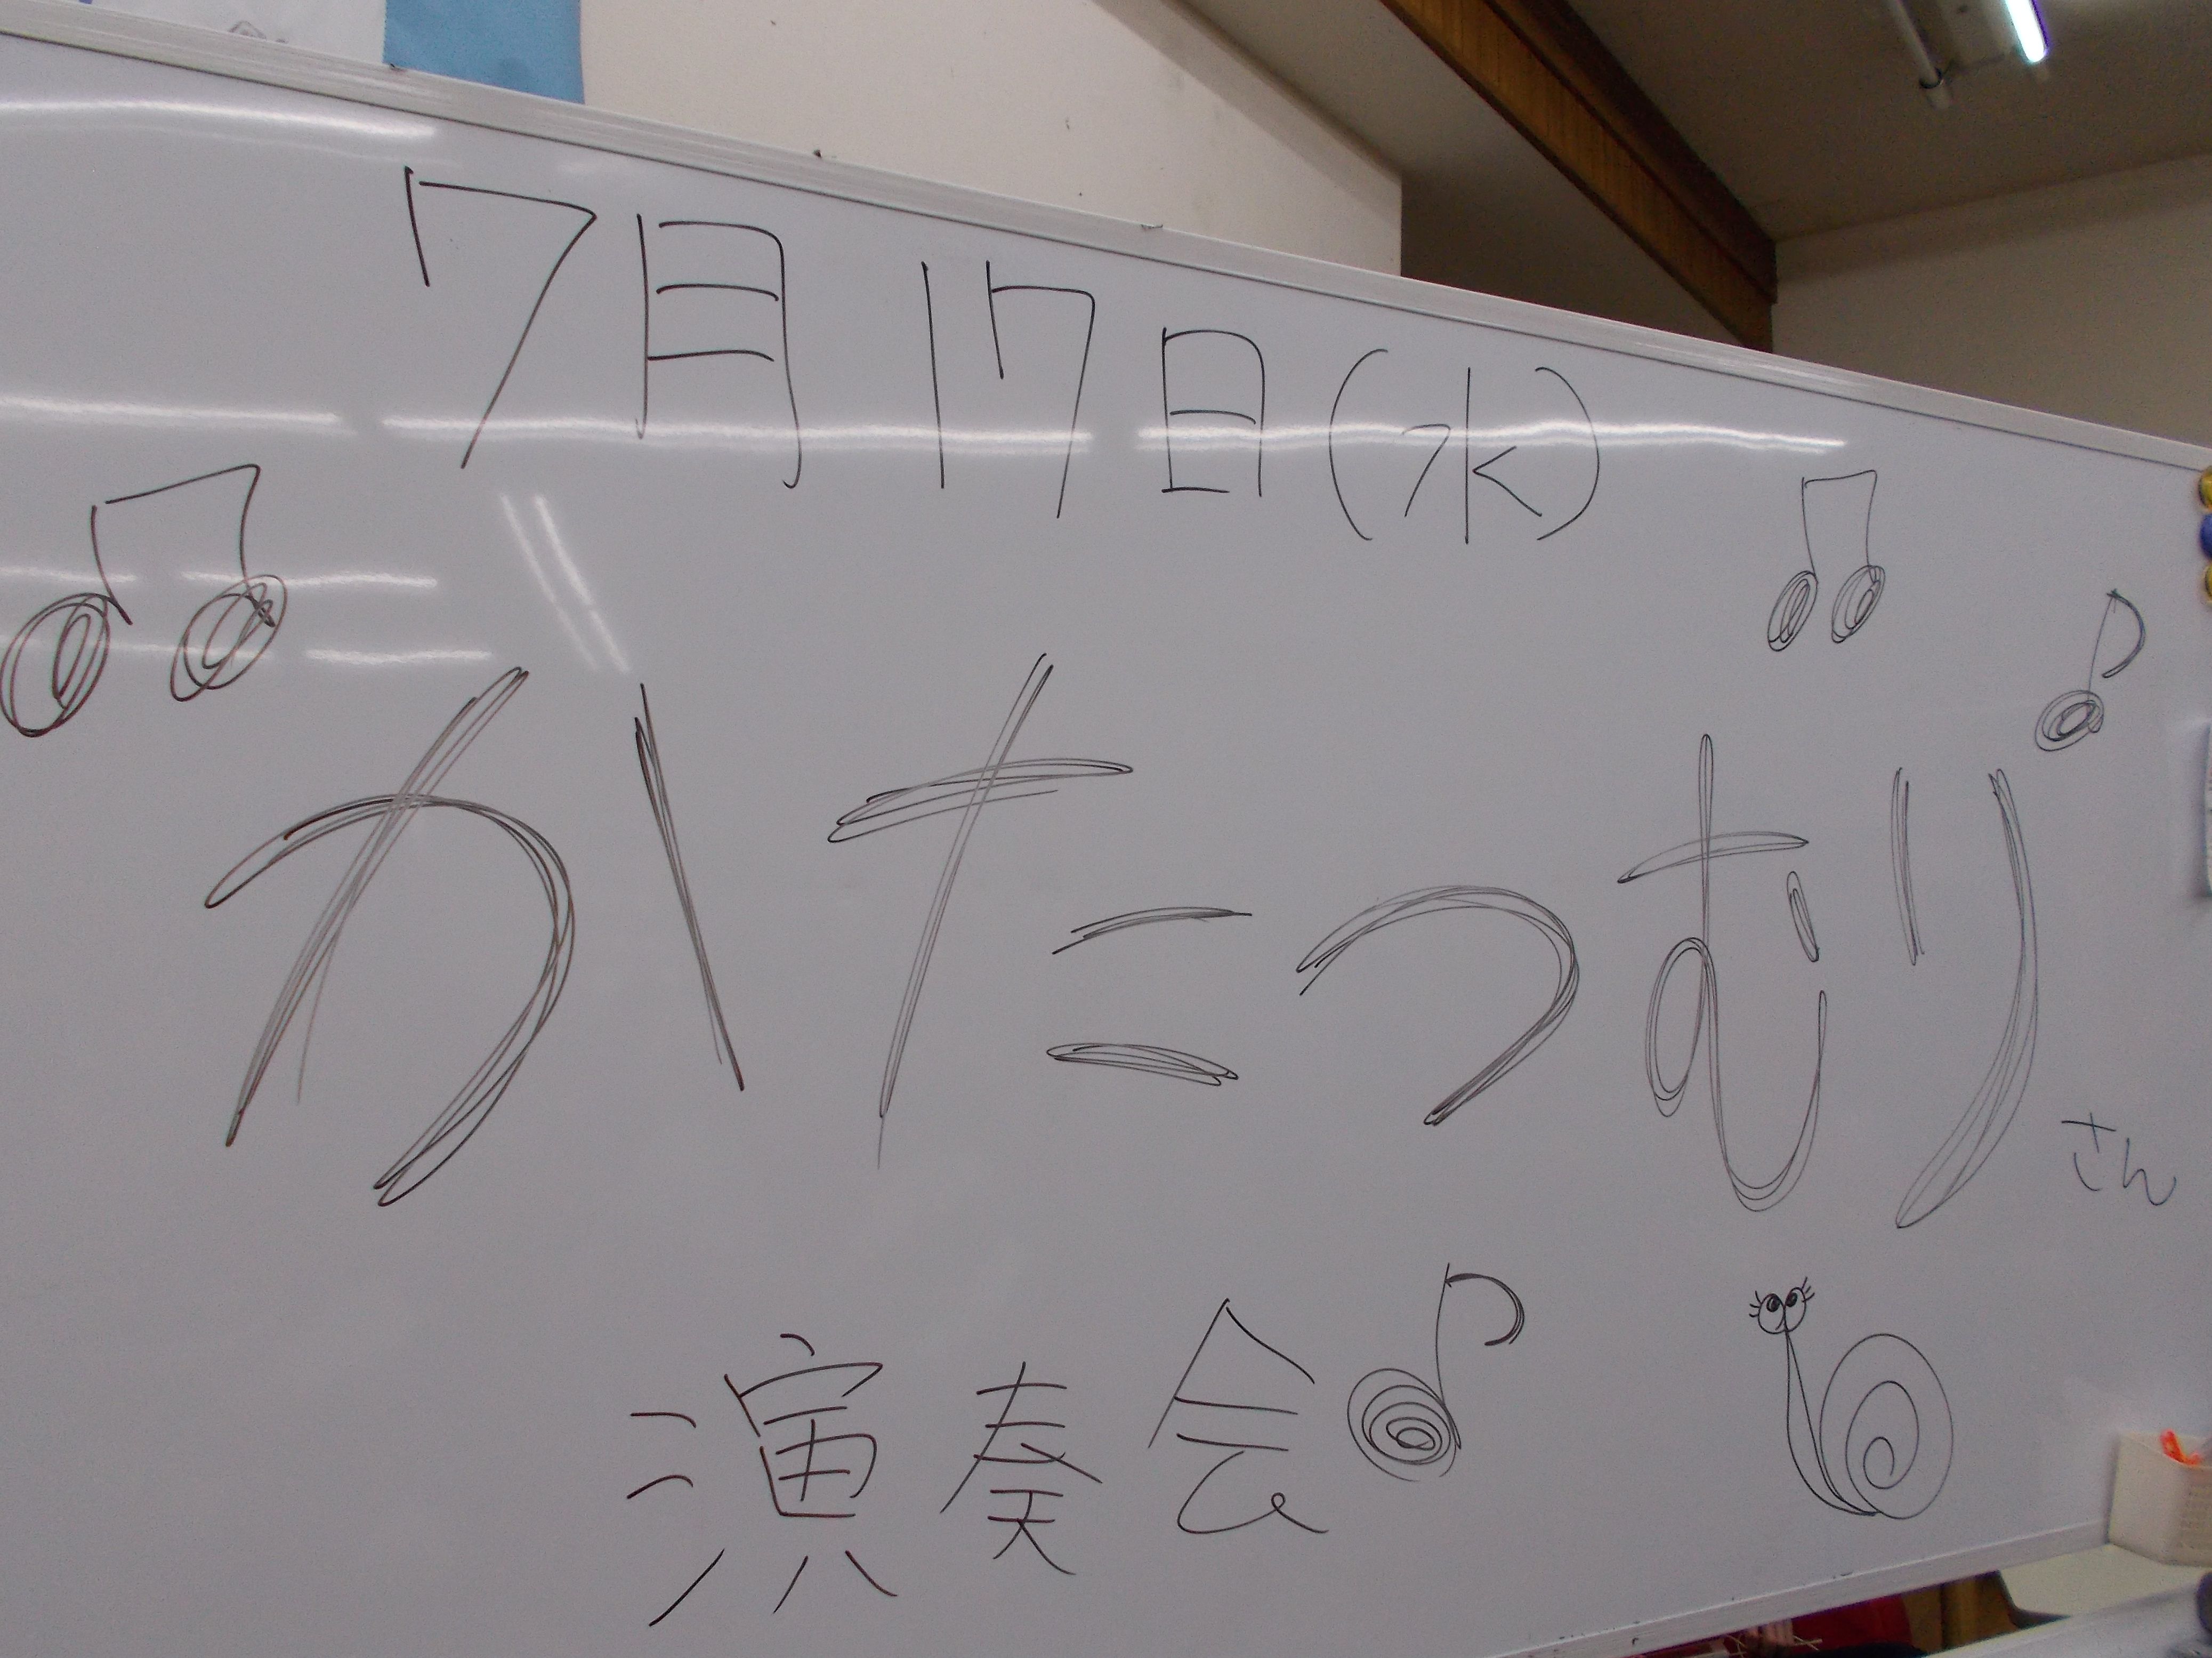 7月17日(水)
かたつむりさん
演奏会♪